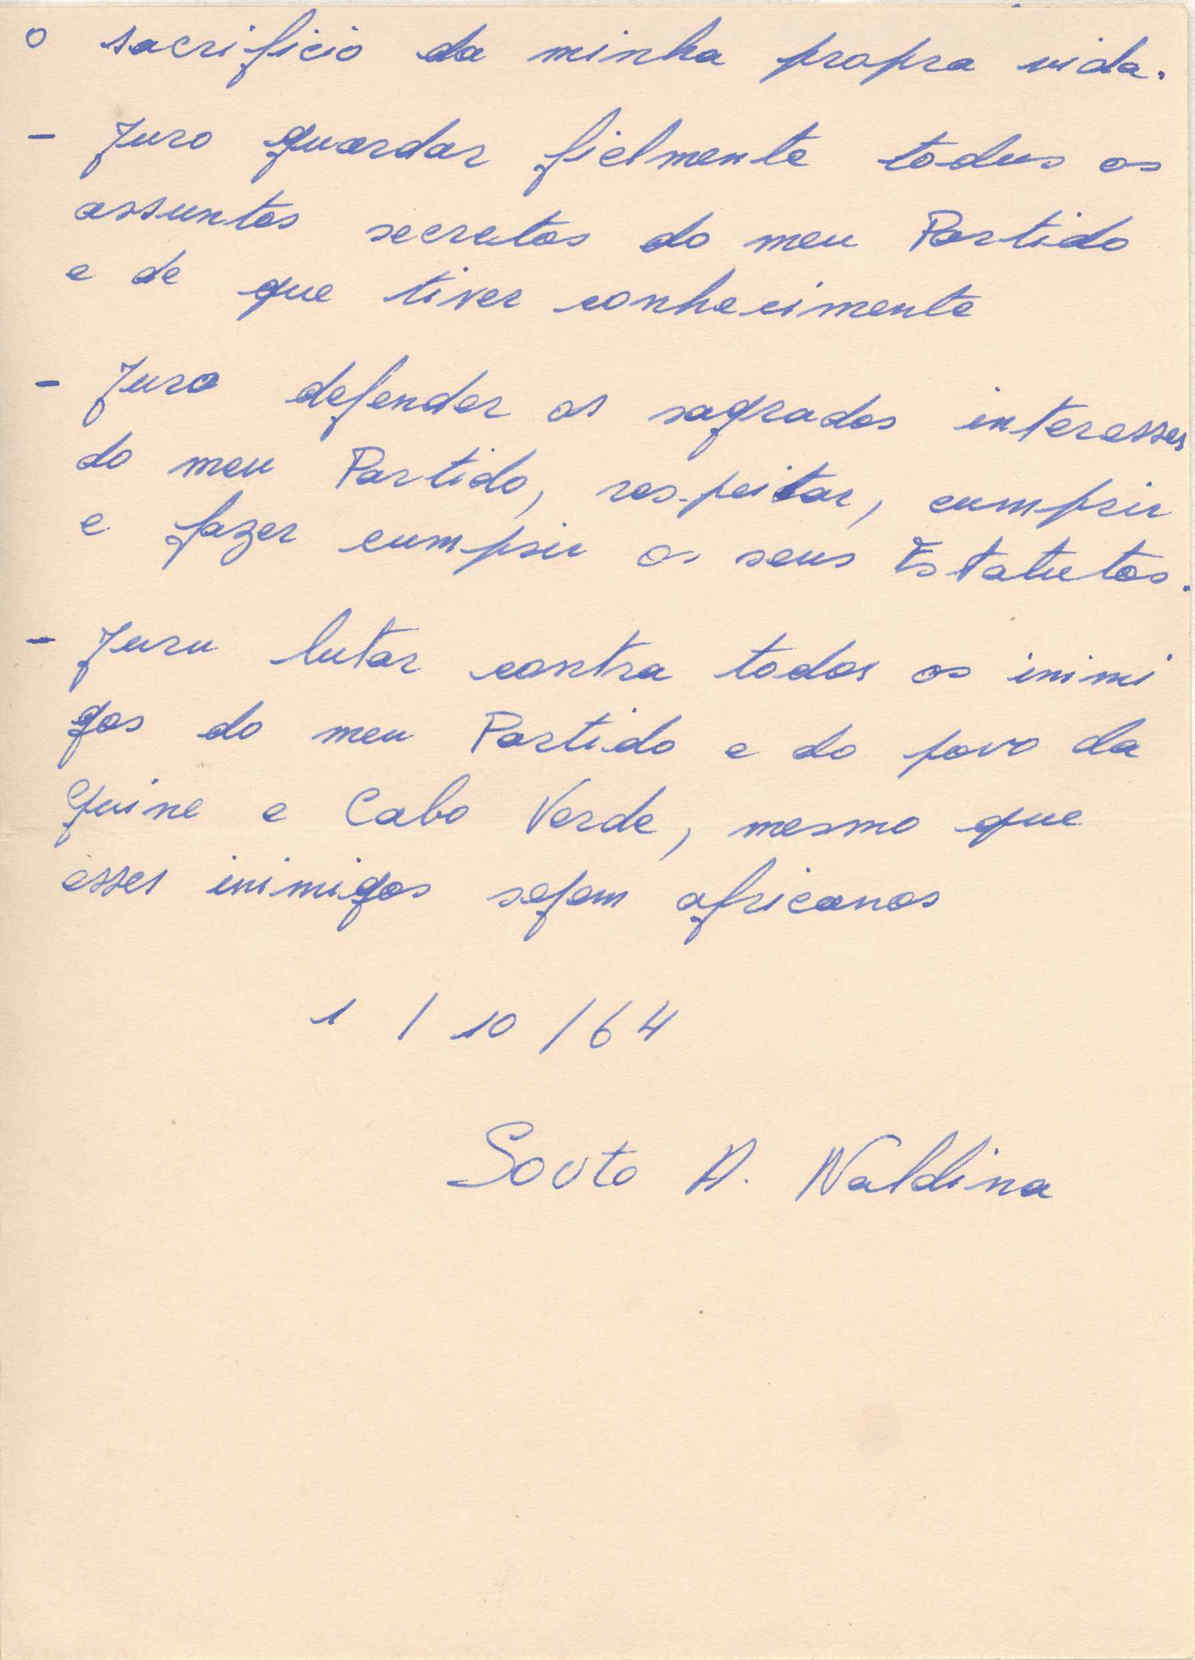 o sacrificio da minha propra vida.
- Juro guardar fielmente todos os
assuntos secretos do meu Partido
e de que tiver conhecimento
- Juro defender os sagrados interesses
do meu Partido, respeitar, cumprir
e fazer cumprir os seus Estatutos.
- Juro lutar contra todos os inimi
gos do meu Partido e do povo da
Guine e Cabo Verde, mesmo que
esses inimigos sejam africanos
1 / 10 / 64
Souto A. Naldina